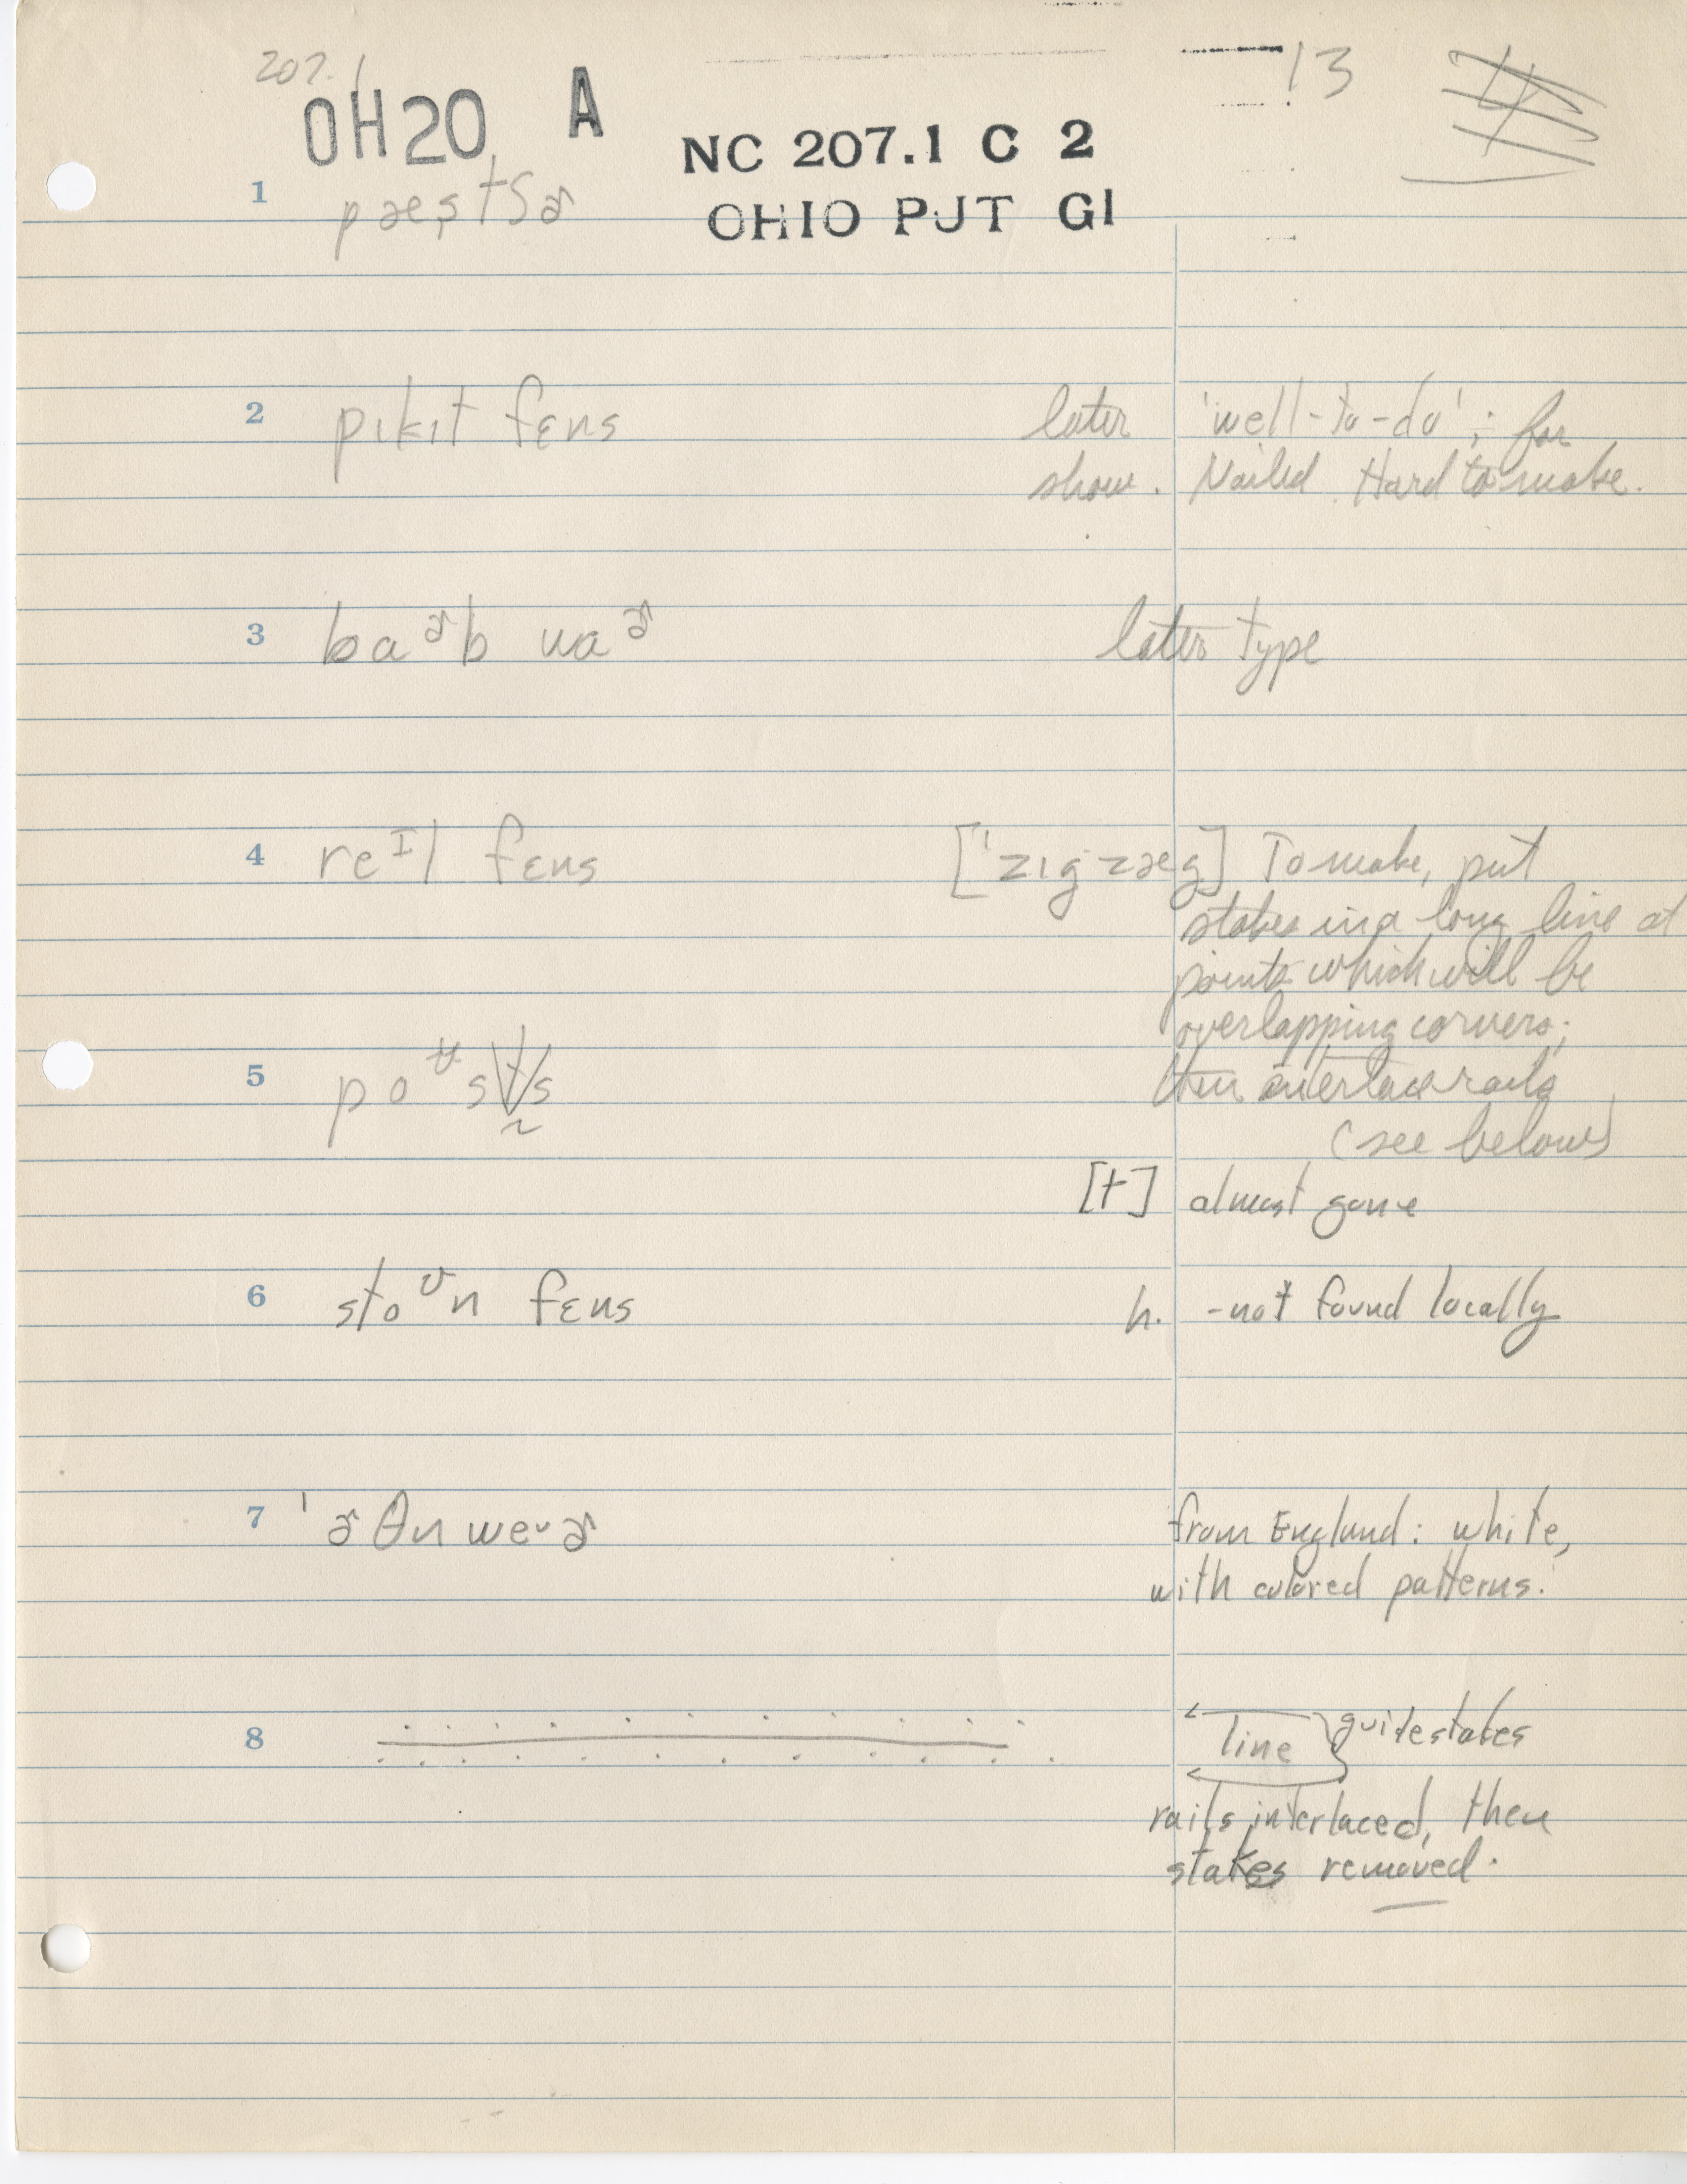 207.1
OH20 A
NC 207.1 C 2
13
OHIO PJT GI
1 pæs̩tʃɚ
2 pɪkɪt fɛns later 'well-to-do'; for
show. Nailed. Hard to make.
3 baɚb waɚ later type
4 reᴵl fɛns ['zɪgzæg] To make, put
stakes in a long line at
points which will be
overlapping corners;
5 poᶷsts then interlace rails
(see below)
[t] almost gone
6 stoᶷn fɛns h. - not found locally
7 'ɚθn weᵛɚ from England: white,
with colored patterns.
8 line guide stakes
rails interlaced, then
stakes removed.